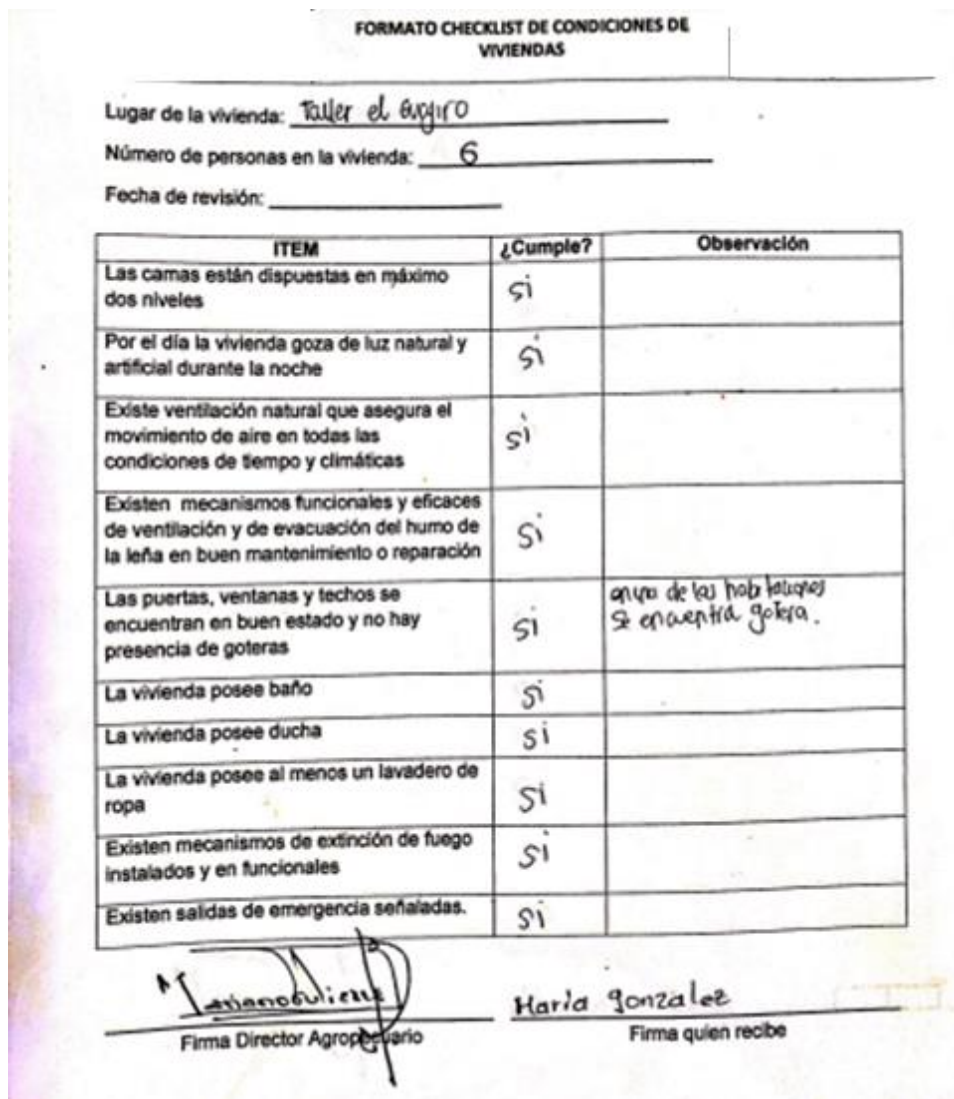 FORMATO CHECKLIST DE CONDICIONES DE
VIVIENDAS
Lugar de la vivienda: Taller el
Número de personas en la vivienda: 6
Fecha de revisión:
ITEM ¿Cumple? Observación
Las camas están dispuestas en máximo
dos niveles
si
Por el día la vivienda goza de luz natural y
artificial durante la noche
si
Existe ventilación natural que asegura el
movimiento de aire en todas las
condiciones de tiempo y climáticas
si
Existen mecanismos funcionales y eficaces
de ventilación y de evacuación del humo de
la leña en buen mantenimiento o reparación
si
Las puertas, ventanas y techos se
encuentran en buen estado y no hay
presencia de goteras
si
de las habitaciones
se encuentra gotera.
La vivienda posee baño
si
La vivienda posee ducha
si
La vivienda posee al menos un lavadero de
ropa
si
Existen mecanismos de extinción de fuego
instalados y en funcionales
si
Existen salidas de emergencia señaladas.
si
Maria gonzalez
Firma Director Agropecuario
Firma quien recibe